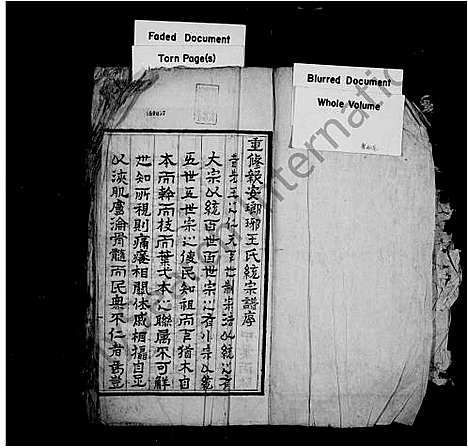 Faded Document
Torn Page(s)
Blurred Document
Whole Volume
重修新安瑯琊王氏統宗譜序
昔先王之仁天下也制宗法以統之有
大宗以統百世百世宗之有小宗以統
五世五世宗之使民知祖而下猶木自
本而榦而枝而葉弋本之聯属不可觧
也知所視則痛癢相關休戚相攝自足
以浹肌膚淪骨髓而民興不仁者寡豈